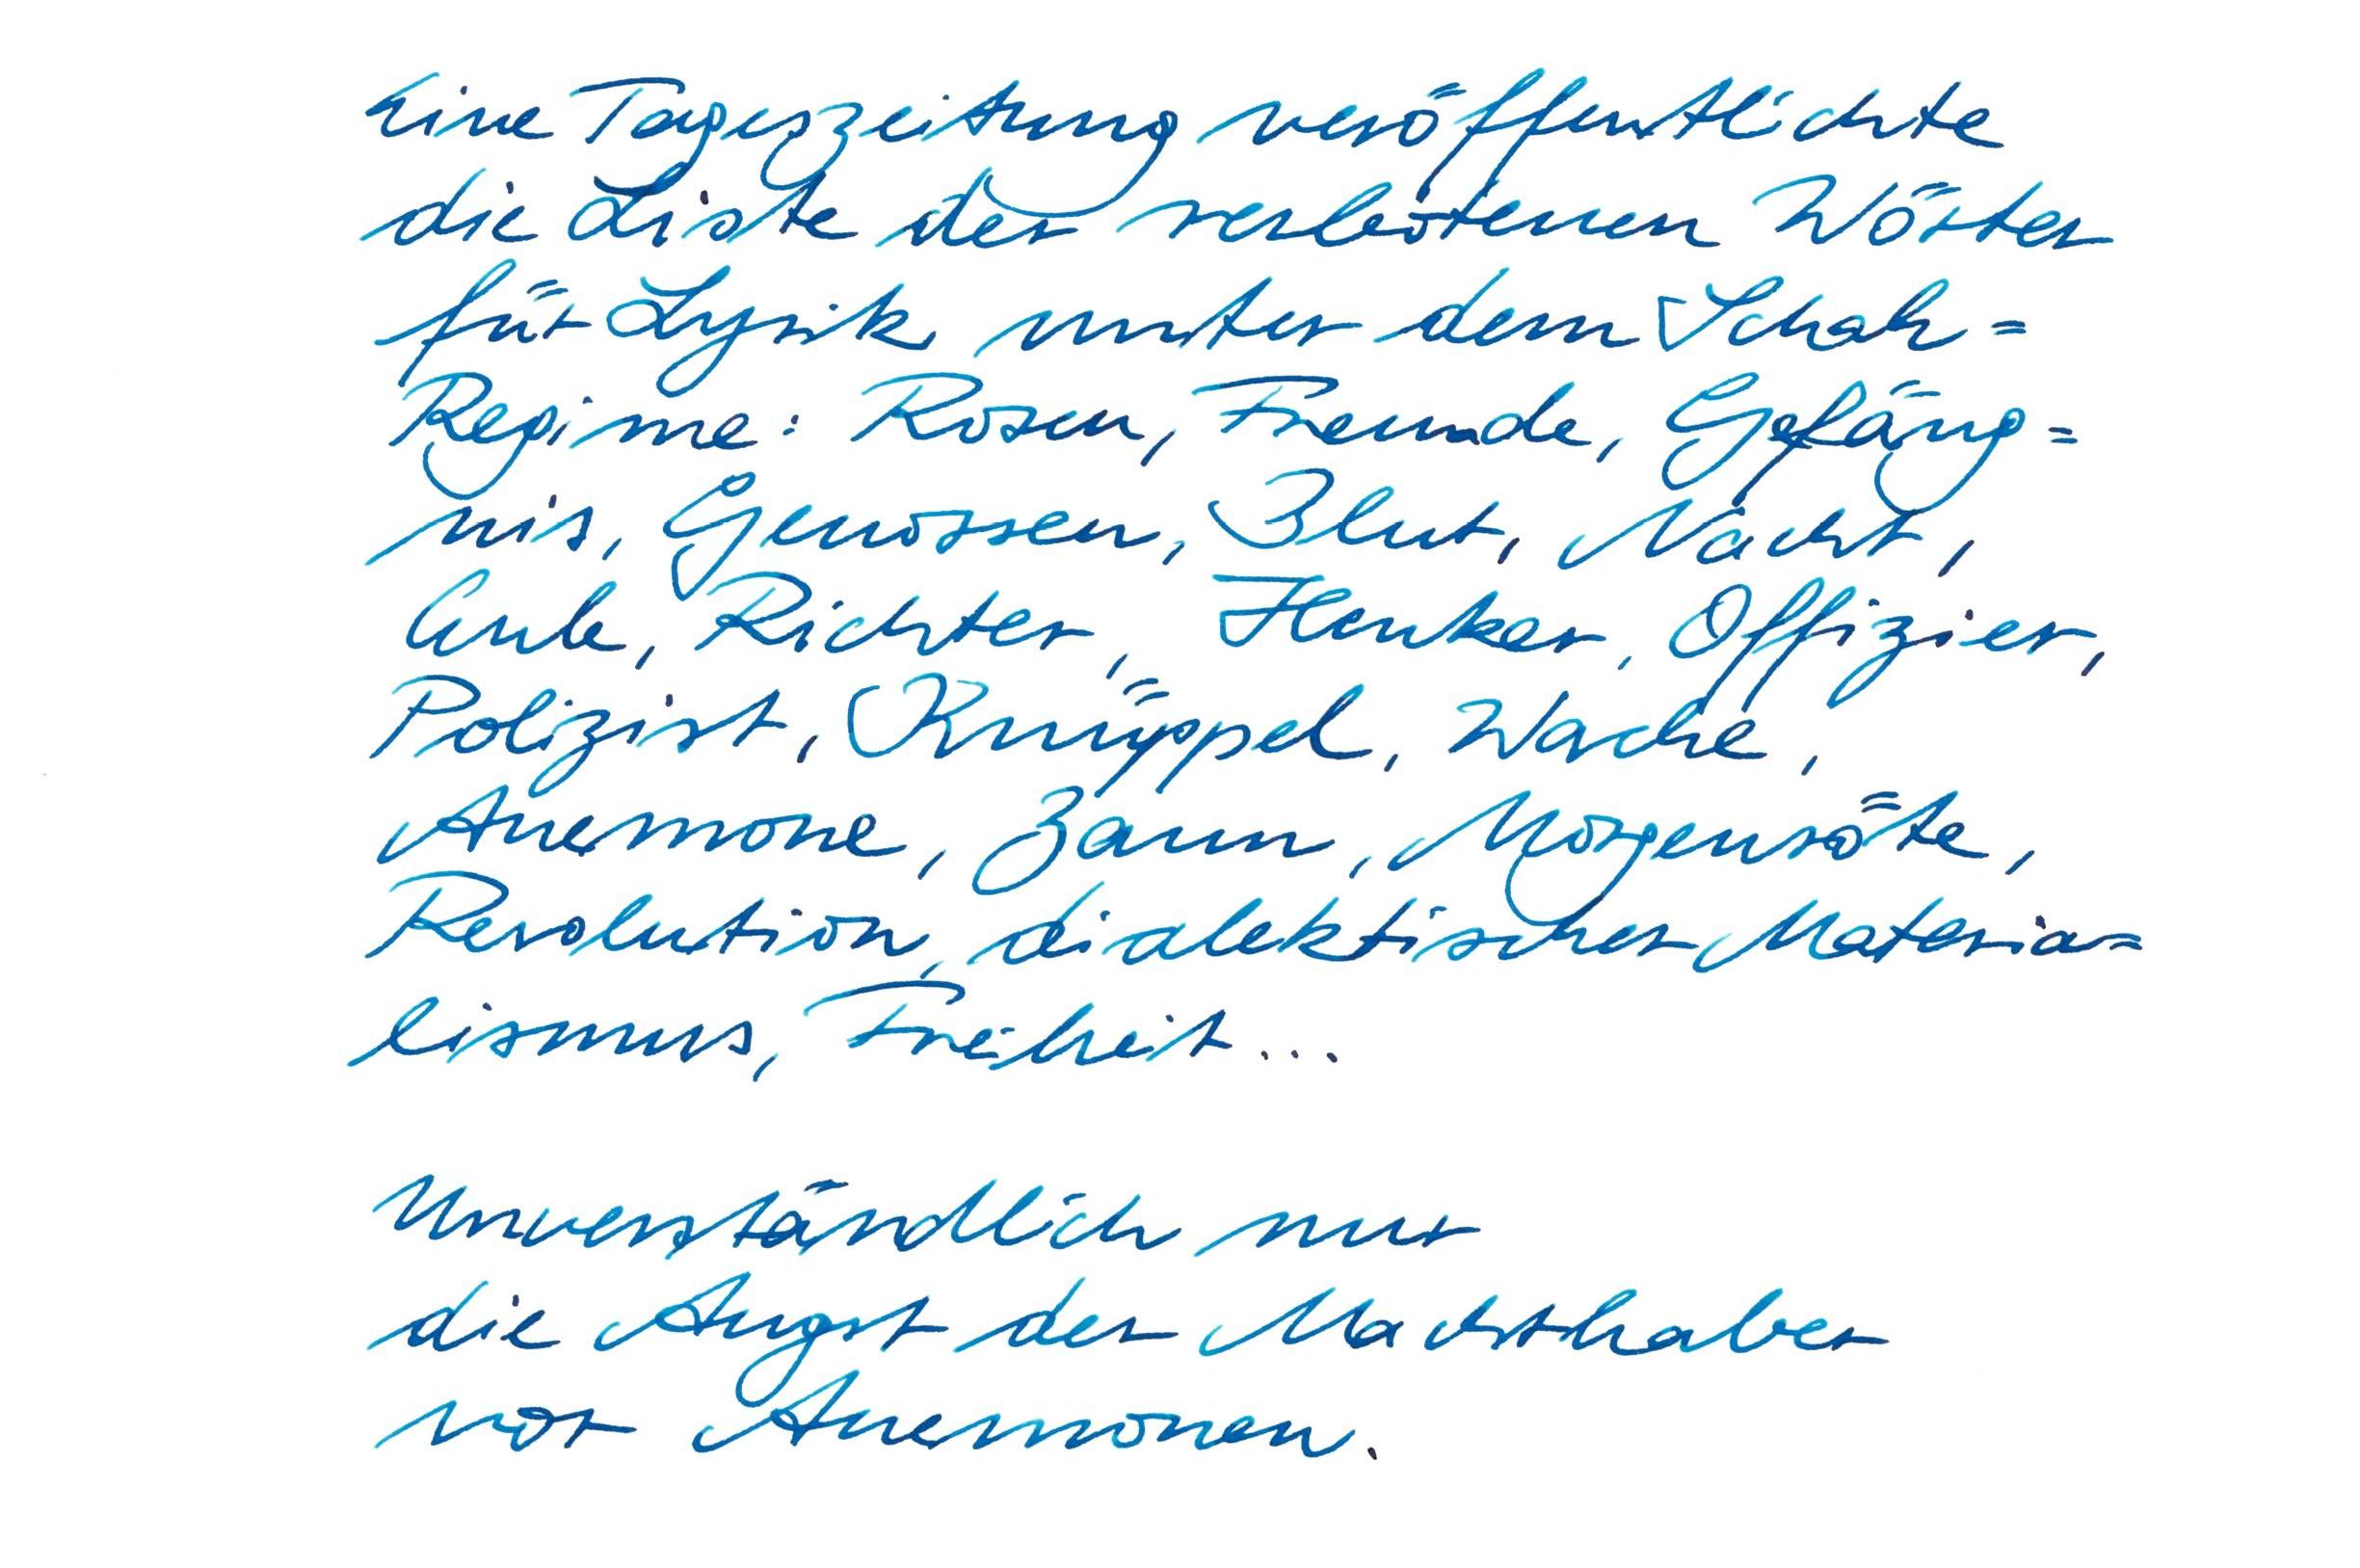 Eine Tageszeitung veröffentlichte
die Liste der verbotenen Wörter
für Lyrik unter dem Schah=
Regime: Rosen, Freunde, Gefäng=
nis, Genossen, Blut, Nacht,
Eule, Richter, Henker, Offizier,
Polizist, Knüppel, Wache,
Anemone, Zaun, Morgenröte,
Revolution, dialektischer Materia-
lismus, Freiheit...
Unverständlich nur
die Angst der Machthaber
vor Anemonen.